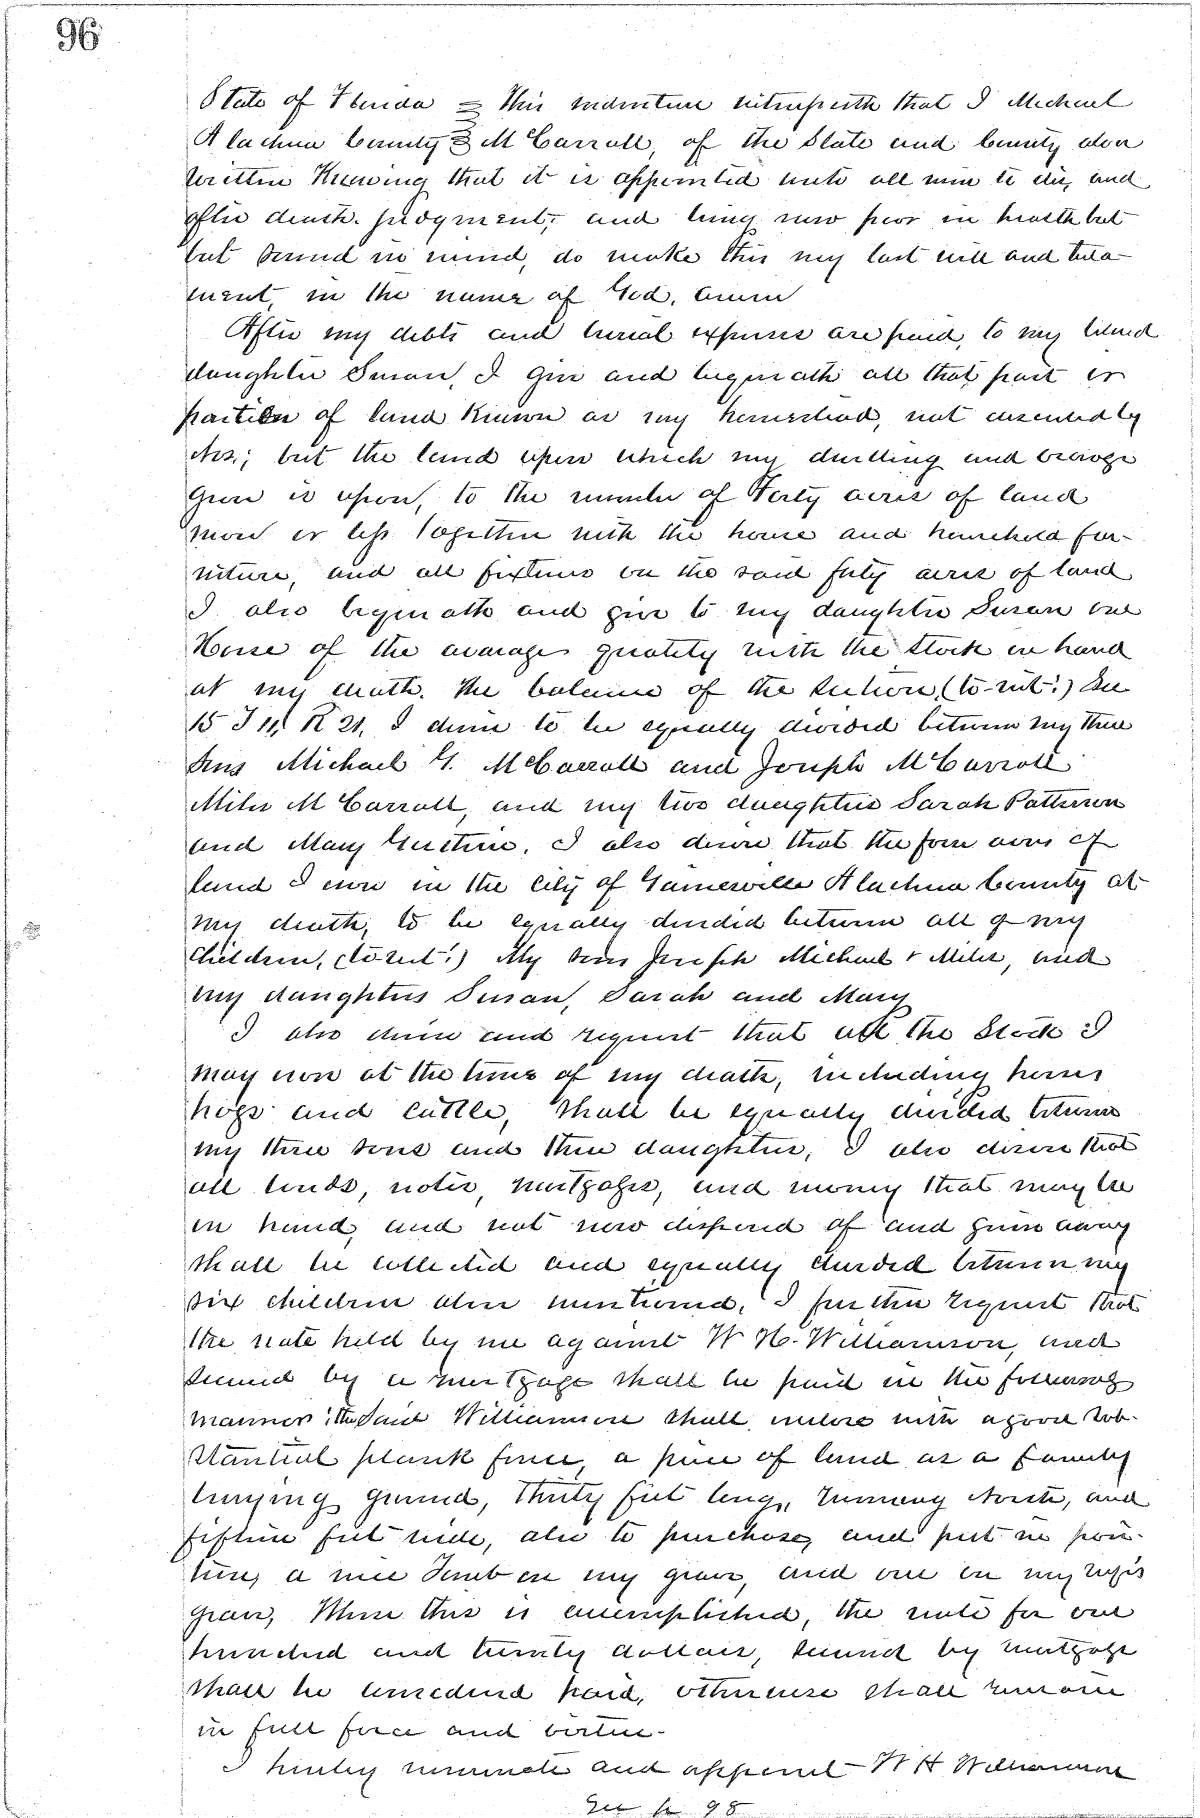 96
State of Florida = This indenture witnesseth that I Michael
Alachua County } McCarroll, of the State and County above
written Knowing that it is appointed unto all men to die, and
after death judgment, and being now poor in health but
but sound in mind, do make this my last will and testa-
ment, in the name of God, Amen
After my debts and burial expenses are paid, to my beloved
daughter Susan, I give and bequeath all that part or
portion of land Known as my homestead, not deeded by
but the land upon which my dwelling and orange
Grove is upon, to the number of Forty acres of land
more or less Together with the house and household fur-
niture, and all fixtures on the said forty acres of land
I also bequeath and give to my daughter Susan one
Horse of the average quality with the stock on hand
at my death. The balance of the section, (to-wit:) Sec
15 T 11, R 21, I desire to be equally divided between my three
Sons Michael G. McCarroll and Joseph McCarroll
Miles McCarroll, and my two daughters Sarah Patterson
and Mary. I also desire that the four acres of
land I own in the City of Gainesville Alachua County at
my death, to be equally divided between all of my
Children, (to-wit:) My sons Joseph Michael & Miles, and
my daughters Susan, Sarah and Mary
I also desire and request that all the Stock I
may own at the time of my death, including horses
hogs and cattle, shall be equally divided between
my three sons and three daughters, I also desire that
all bonds, notes, mortgages, and money that may be
on hand, and not now disposed of and given away
shall be collected and equally divided between my
six children above mentioned. I further request that
the note held by me against W H. Williamson, and
secured by a mortgage shall be paid in the following
manner: the said Williamson shall inclose with a good sub-
stantial plank fence, a piece of land as a family
burying ground, Thirty feet long, running North, and
fifteen feet wide, also to purchase, and put in posi-
tion, a nice Tomb on my grave, and one on my wife's
grave, When this is accomplished, the note for one
hundred and twenty dollars, secured by mortgage
shall be considered paid, otherwise shall remain
in full force and virtue-
I hereby nominate and appoint W H Williamson
See p 98